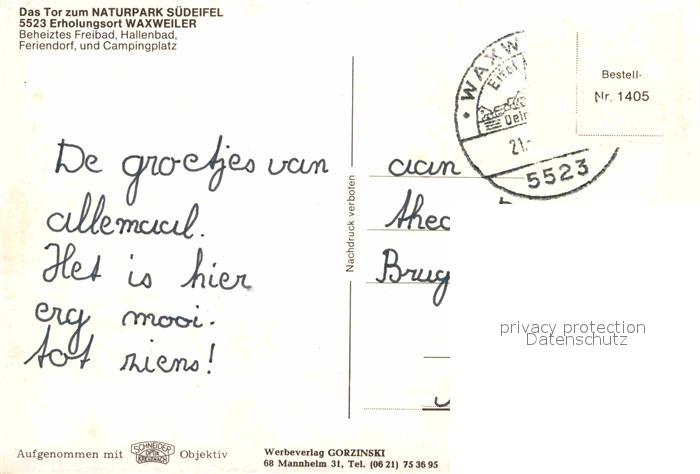 Das Tor zum NATURPARK SÜDEIFEL
5523 Erholungsort WAXWEILER
Beheiztes Freibad, Hallenbad,
Feriendorf, und Campingplatz
De groetjes van
allemaal.
Het is hier
erg mooi.
tot ziens!
Nachdruck verboten
WAXW
Eifel
Dein
21.-
5523
Bestell-
Nr. 1405
aan
theo
Brug
privacy protection
Datenschutz
Aufgenommen mit SCHNEIDER OPTIK KREUZNACH Objektiv
Werbeverlag GORZINSKI
68 Mannheim 31, Tel. (06 21) 75 36 95